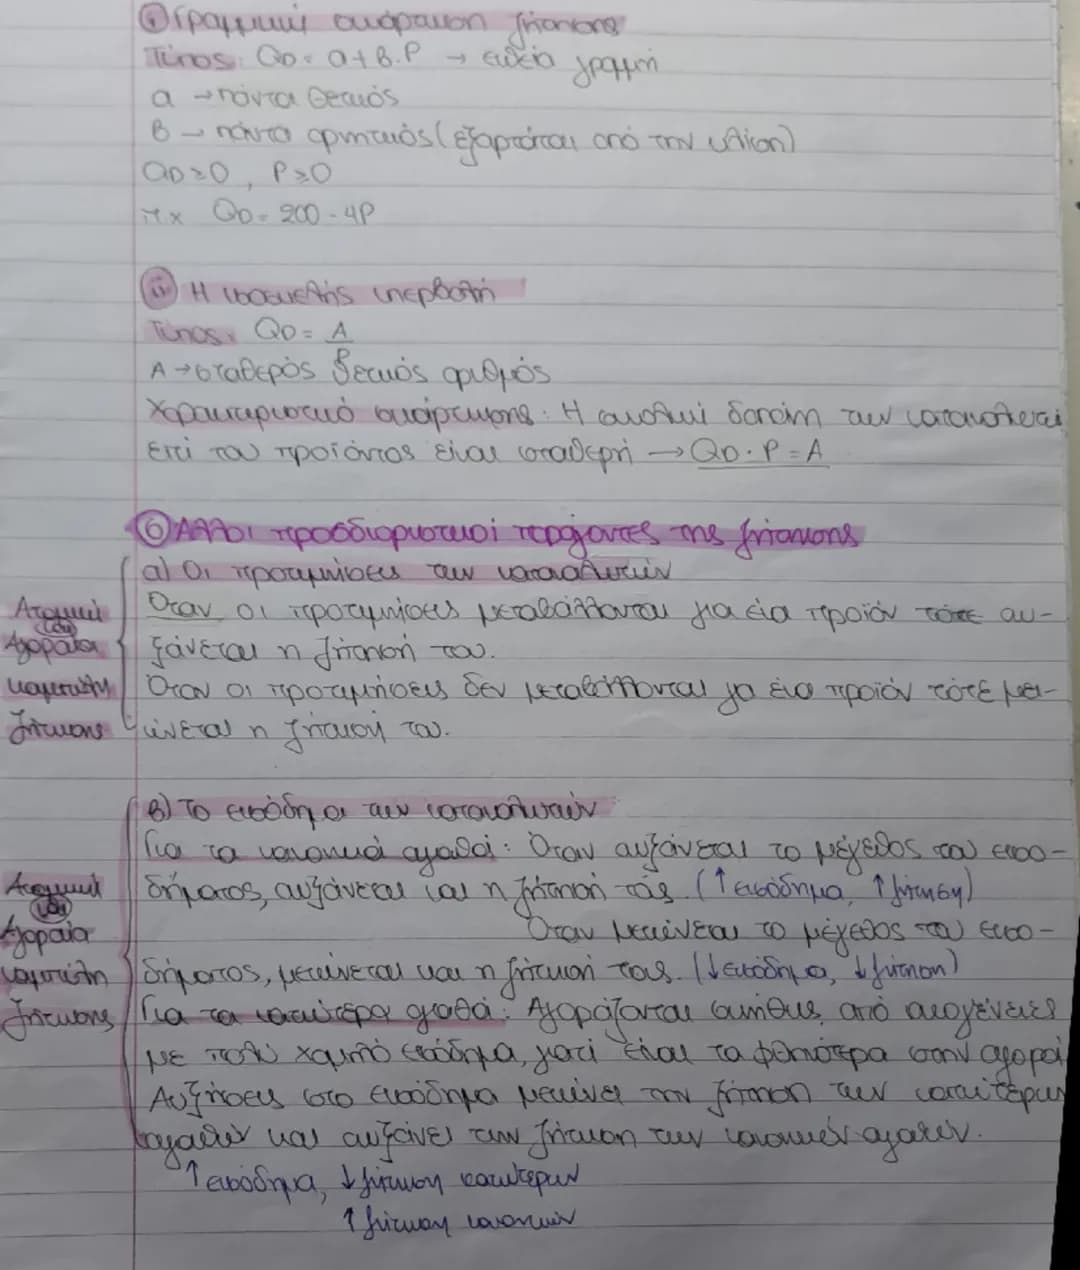 i Γραμμική συνάρτηση ζήτησης
Τύπος: QD = α + β.P → ευθεία γραμμή
α → πάντα θετικός
β → πάντα αρνητικός (εξαρτάται από την κλίση)
QD ≥ 0 , P ≥ 0
πχ QD = 200 - 4P
ii Η ισοσκελής υπερβολή
Τύπος: QD = A/P
A → σταθερός θετικός αριθμός
Χαρακτηριστικό συνάρτησης: Η συνολική δαπάνη των καταναλωτών
επί του προϊόντος είναι σταθερή → QD · P = A
6 Άλλοι προσδιοριστικοί παράγοντες της ζήτησης
α) Οι προτιμήσεις των καταναλωτών
Όταν οι προτιμήσεις μεταβάλλονται για ένα προϊόν τότε αυ-
ξάνεται η ζήτησή του.
Όταν οι προτιμήσεις δεν μεταβάλλονται για ένα προϊόν τότε μει-
ώνεται η ζήτησή του.
Ατομική
και
Αγοραία
καμπύλη
ζήτησης
β) Το εισόδημα των καταναλωτών
Για τα κανονικά αγαθά: Όταν αυξάνεται το μέγεθος του εισο-
δήματος, αυξάνεται και η ζήτησή τους. (↑ εισόδημα, ↑ ζήτηση)
Όταν μειώνεται το μέγεθος του εισο-
δήματος, μειώνεται και η ζήτησή τους. (↓ εισόδημα, ↓ ζήτηση)
Για τα κατώτερα αγαθά: Αγοράζονται συνήθως από οικογένειες
με πολύ χαμηλό εισόδημα, γιατί είναι τα φθηνότερα στην αγορά
Αυξήσεις στο εισόδημα μειώνει την ζήτηση των κατώτερων
αγαθών και αυξάνει την ζήτηση των κανονικών αγαθών.
↑ εισόδημα, ↓ ζήτηση κατώτερων
↑ ζήτηση κανονικών
Ατομική
και
Αγοραία
καμπύλη
ζήτησης